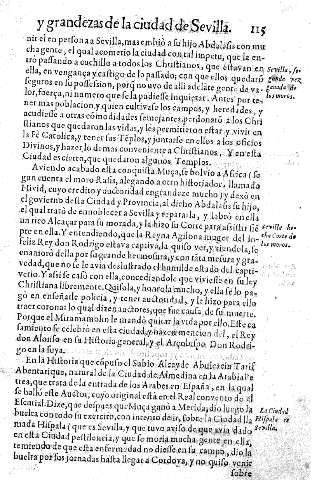 y grandezas de la ciudad de Sevilla. 115
nir el en persona a Sevilla, mas embió a su hijo Abdalasis con mu
cha gente, el qual acometio la ciudad con tal impetu, que la en-
tró passando a cuchillo a todos los Christianos, que estavan en
ella, en vengança y castigo de lo passado; con que ellos quedaró
seguros en su possession, porq no uvo de alli adelate gente de va-
lor, fuerça, ni numero que se la pudiesse inquietar. Antes por te-
ner mas poblacion, y quien cultivasse los campos, y heredades, y
acudiesse a otras cómodidades semejantes, perdonaró a los Chri
stianos que quedaron las vidas, y les permitieron estar y vivir en
la Fè Catolica, y tener sus Téplos, y juntarse en ellos a los oficios
Divinos, y hazer lo de mas conveniente a Christianos. Y en esta
Ciudad es cierto, que quedaron algunos Templos.
Sevilla, se-
gunda vez
ganada de
los moros.
Aviendo acabado esta conquista Muça, se bolvio a Africa (se
gun cuenta el moro Rasis, alegando a otro historiador, llamado
Hivid, cuyo credito y auctoridad engrandeze mucho) y dexò en
el govierno desta Ciudad y Provincia, al dicho Abdalasis su hijo,
el qual trató de ennoblecer a Sevilla y repararla, y labrò en ella
un rico Alcaçar para su morada, y la hizo su Corte para assistir sié
pre en ella. Y entendiendo, que la Reyna Agilona muger del in-
felix Rey don Rodrigo estava captiva, la quiso ver, y viendola, se
enamorò della por su grande hermosura, y con tanta mesura y gra-
vedad, que no se le avia deslustrado el humilde estado del capti-
verio. Y assi se casò con ella, concediendole que viviesse en su ley
Christiana libremente. Quisola, y honrola mucho, y ella se lo pa-
gò en enseñarle policia, y tener auctoridad, y le hizo para ello
traer corona: lo qual dizen auctores, que fue causa, de su muerte.
Porque el Miramamolin le mandò quitar la vida por ello. Este ca
samiento se celebrò en esta ciudad, y hazen mencion del, el Rey
don Alonso en su Historia general, y el Arçobispo Don Rodri-
go en la suya.
Sevilla he-
cha Corte de
los moros.
En la Historia que cópuso el Sabio Alcayde Abulcacin Tarif
Abentarique, natural de la Ciudad de Almedina en la Arabia Pe
trea, que trata de la entrada de los Arabes en España, en la qual
se hallò este Auctor, cuyo original està en el Real convento de el
Escurial: Dize, que despues que Muça ganò a Merida, dio luego la
buelta con todo su exercito, con intento de ir, sobre la Ciudad lla
mada Hispala (que es Sevilla, y que tuvo aviso de que avia dado
en esta Ciudad pestilencia, y que se moria mucha gente en ella,
temiendo de que esta enfermedad no diesse en su campo, dio la
buelta por sus jornadas hasta llegar a Cordova, y no quiso venir
La Ciudad
Hispala es
Sevilla.
sobre